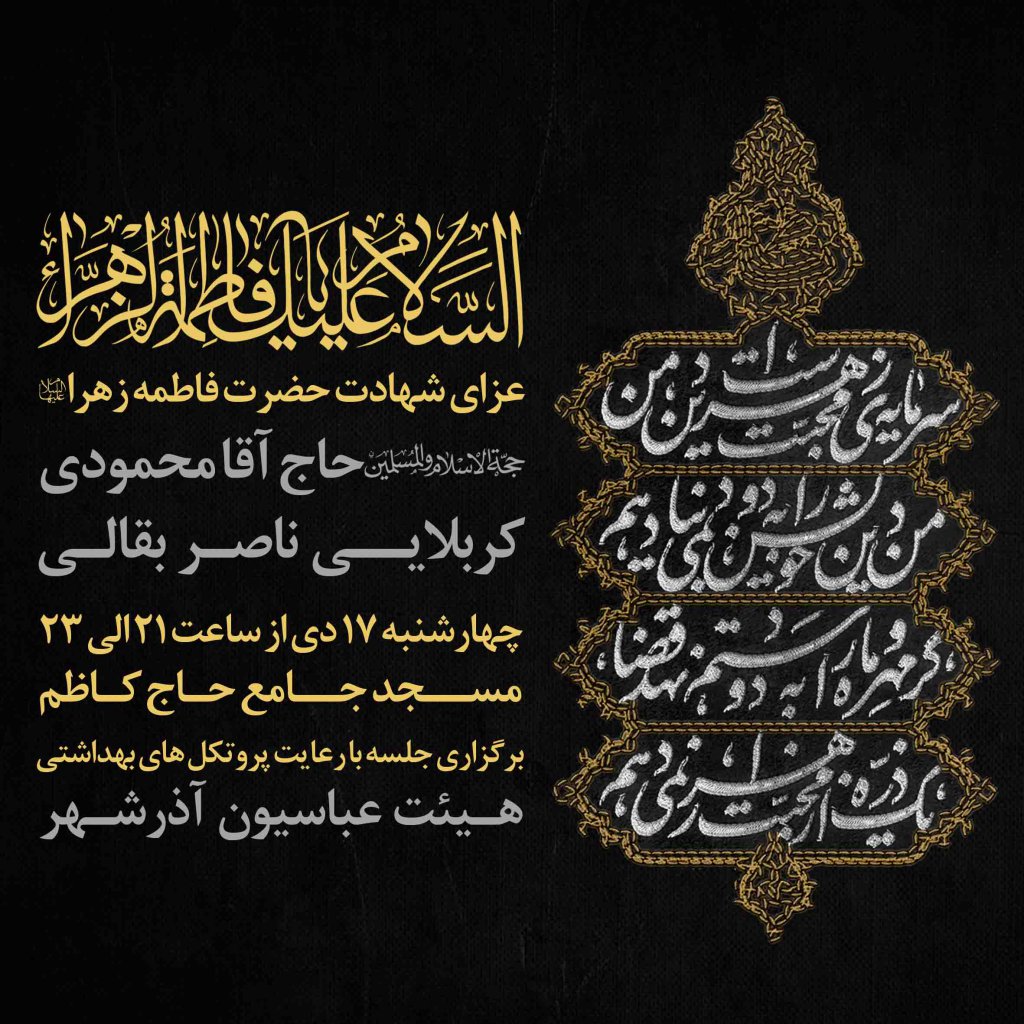 السَّلامُ عَلَیكِ یا فاطِمَةُ الزَّهراءُ
عزای شهادت حضرت فاطمه زهرا علیهاالسلام
حجة الاسلام والمسلمین حاج آقا محمودی
کربلایی ناصر بقالی
چهارشنبه ۱۷ دی از ساعت ۲۱ الی ۲۳
مسجد جامع حاج کاظم
برگزاری جلسه با رعایت پروتکل های بهداشتی
هیئت عباسیون آذرشهر
سرمایه‌ی محبت زهراست دین من
من دین خویش را به دو دنیا نمی دهم
گر مهر و ماه را به دو دستم نهد قضا
یک ذره از محبت زهرا نمی دهم